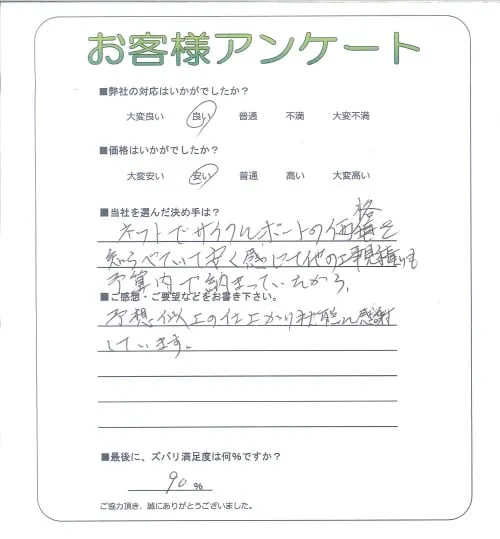 お客様アンケート
■弊社の対応はいかがでしたか?
大変良い 良い 普通 不満 大変不満
■価格はいかがでしたか?
大変安い 安い 普通 高い 大変高い
■当社を選んだ決め手は?
ネットでサイクルポートの価格を
調らべていて安く感じて他の工事見積りも
予算内で納まっていたから、
■ご感想・ご要望などをお書き下さい。
予想以上の仕上がり 感謝
しています。
■最後に、ズバリ満足度は何%ですか?
90 %
ご協力頂き、誠にありがとうございました。